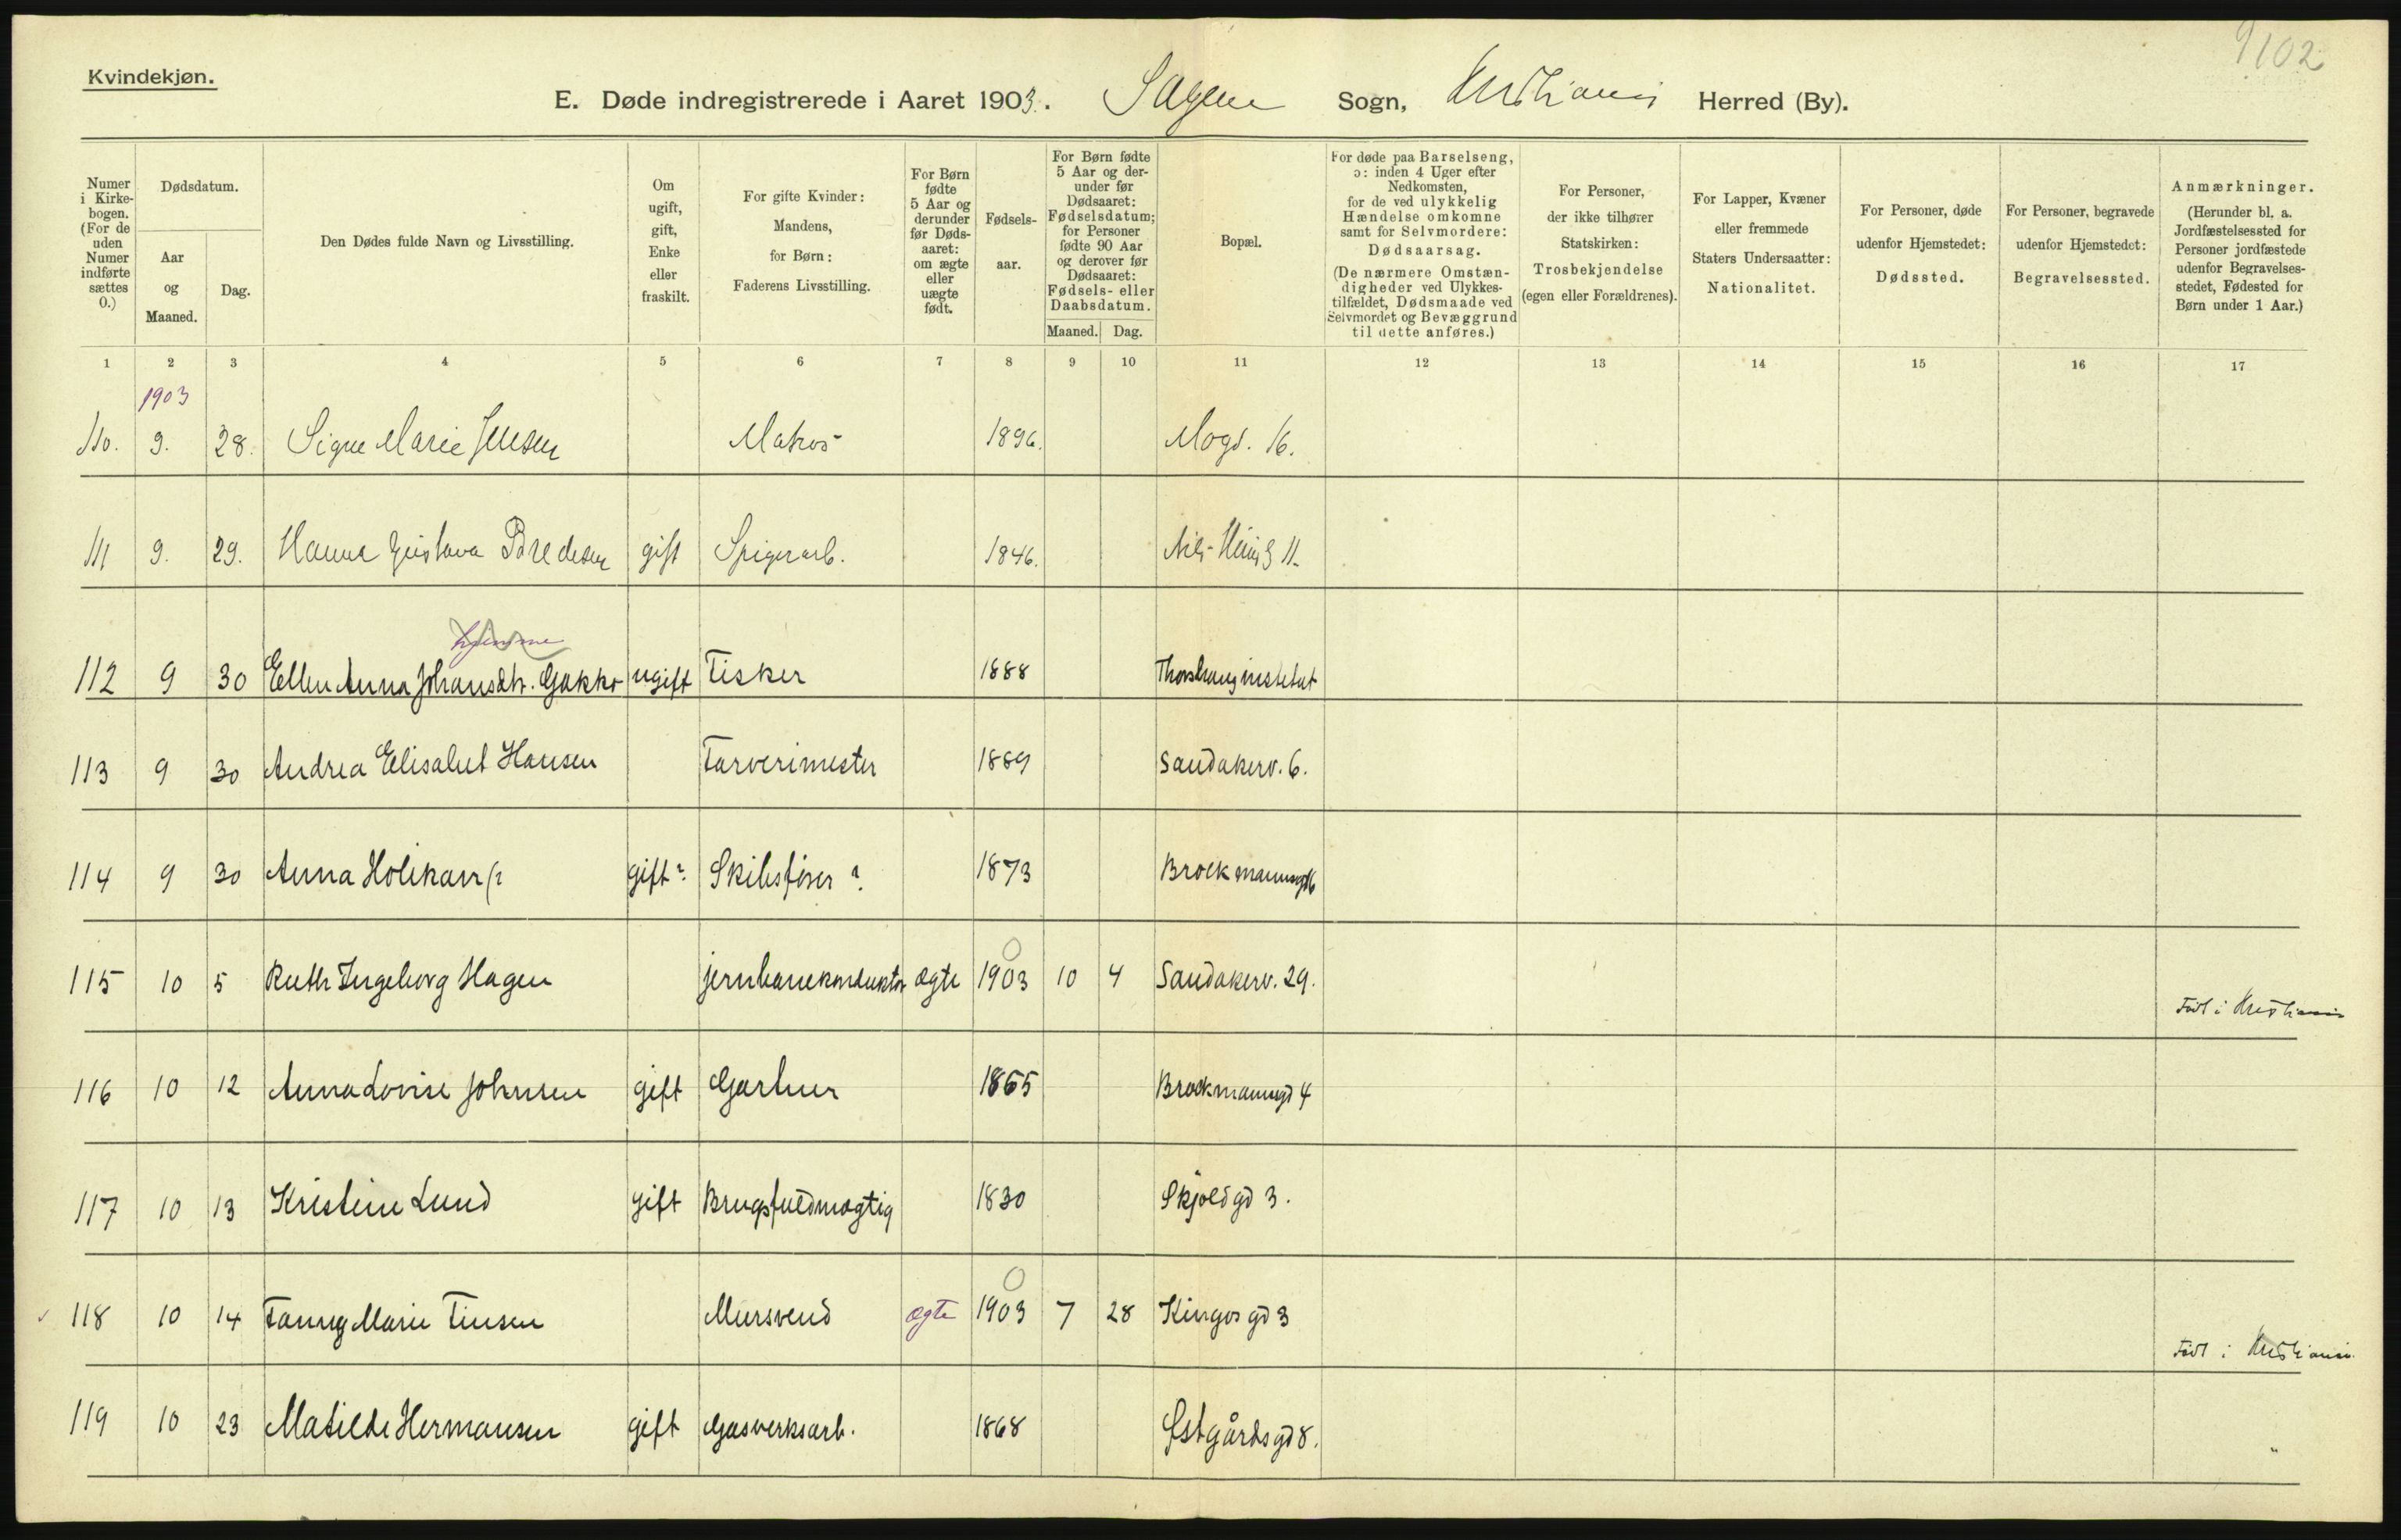 9102
Kvindekjøn.
E. Døde indregistrerede i Aaret 1903. Sagene Sogn, Kristiania Herred (By).
Numer i Kirkebogen. (For de uden Numer indførte sættes 0.)
Dødsdatum.
Aar og Maaned.
Dag.
Den Dødes fulde Navn og Livsstilling.
Om ugift, gift, Enke eller fraskilt.
For gifte Kvinder: Mandens, for Børn: Faderens Livsstilling.
For Børn fødte 5 Aar og derunder før Dødsaaret: om ægte eller uægte født.
Fødselsaar.
For Børn fødte 5 Aar og derunder før Dødsaaret: Fødselsdatum; for Personer fødte 90 Aar og derover før Dødsaaret: Fødsels- eller Daabsdatum.
Maaned. Dag.
Bopæl.
For døde paa Barselseng, ɔ: inden 4 Uger efter Nedkomsten, for de ved ulykkelig Hændelse omkomne samt for Selvmordere: Dødsaarsag. (De nærmere Omstændigheder ved Ulykkestilfældet, Dødsmaade ved Selvmordet og Bevæggrund til dette anføres.)
For Personer, der ikke tilhører Statskirken: Trosbekjendelse (egen eller Forældrenes).
For Lapper, Kvæner eller fremmede Staters Undersaatter: Nationalitet.
For Personer, døde udenfor Hjemstedet: Dødssted.
For Personer, begravede udenfor Hjemstedet: Begravelsessted.
Anmærkninger. (Herunder bl. a. Jordfæstelsessted for Personer jordfæstede udenfor Begravelsesstedet, Fødested for Børn under 1 Aar.)
1 2 3 4 5 6 7 8 9 10 11 12 13 14 15 16 17
1903
110. 9. 28. Signe Marie Jensen Matros 1896. Mogs. 16.
111 9. 29. Hanna Gustava Bredesen gift Spigerarb. 1846. 11.
hjemme
112 9 30 Ellen Anna Johansdtr. Gakko ugift Fisker 1888
113 9 30 Andrea Elisabet Hansen Farverimester 1889 Sandakerv. 6.
114 9 30 Anna gift? Skibsfører? 1873 Brockmannsgd 16
115 10 5 Ruth Ingeborg Hagen jernbanekonduktør ægte 1903 0 10 4 Sandakerv. 29. Født i Kristiania
116 10 12 Anna Lovise Johnsen gift Gartner 1865 Brockmannsgd 4
117 10 13 Kristine Lund gift Brugsfuldmægtig 1830 Skjoldgd 3.
118 10 14 Fanny Marie Finsen Mursvend ægte 1903 0 7 28 Kingosgd 3 Født i Kristiania
119 10 23 Matilde Hermansen gift Gasverksarb. 1868 Østgårdsgd 8. "